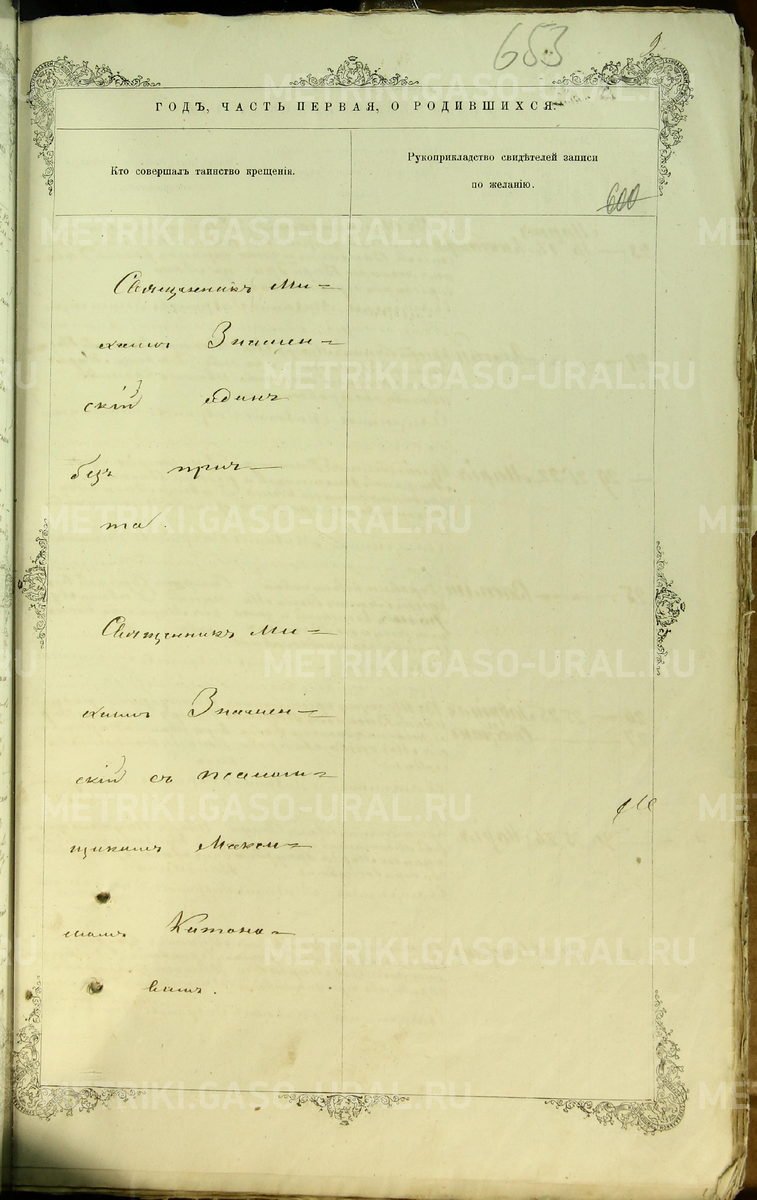 653
2
ГОДЪ, ЧАСТЬ ПЕРВАЯ, О РОДИВШИХСЯ.
Кто совершалъ таинство крещенія.
Рукоприкладство свидѣтелей записи
по желанію.
600
Священникъ Ми-
хаилъ Знамен-
скій единъ
безъ прич-
та.
Священникъ Ми-
хаилъ Знамен-
скій съ псаломщ-
щикомъ Макси-
момъ Китоно-
вымъ.
METRIKI.GASO-URAL.RU